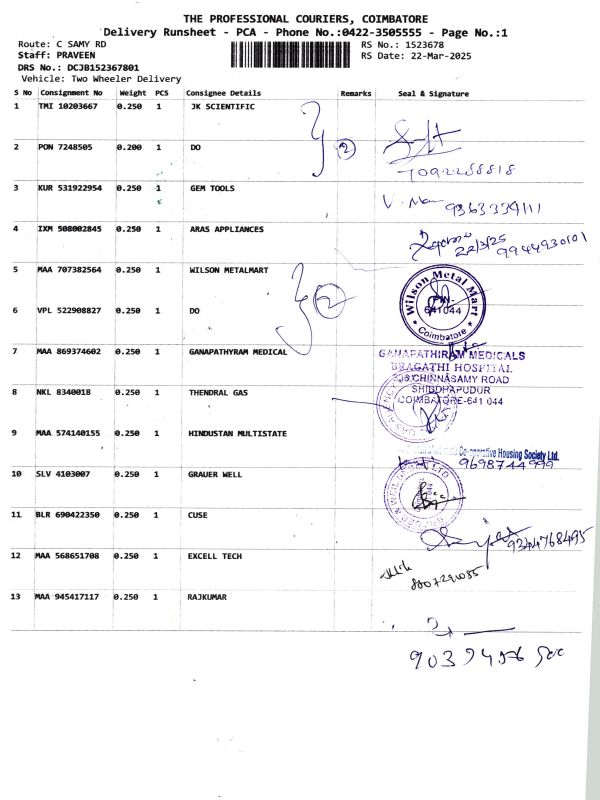 THE PROFESSIONAL COURIERS, COIMBATORE
Delivery Runsheet - PCA - Phone No.:0422-3505555 - Page No.:1
Route: C SAMY RD RS No.: 1523678
Staff: PRAVEEN RS Date: 22-Mar-2025
DRS No.: DCJB152367801
Vehicle: Two Wheeler Delivery
S No Consignment No Weight PCS Consignee Details Remarks Seal & Signature
1 TMI 10203667 0.250 1 JK SCIENTIFIC
2 PON 7248505 0.200 1 DO 2
7092288818
3 KUR 531922954 0.250 1 GEM TOOLS
9363334111
4 IXM 508002845 0.250 1 ARAS APPLIANCES
22/3/25 9944930101
5 MAA 707382564 0.250 1 WILSON METALMART
2
Wilson Metal Mart
PIN-
641044
* Coimbatore *
6 VPL 522908827 0.250 1 DO
7 MAA 869374602 0.250 1 GANAPATHYRAM MEDICAL
GANAPATHIRAM MEDICALS
BRAGATHI HOSPITAL
CHINNASAMY ROAD
COIMBATORE-641 044
8 NKL 8340018 0.250 1 THENDRAL GAS
9 MAA 574140155 0.250 1 HINDUSTAN MULTISTATE
Co-operative Housing Society Ltd.
9698744999
10 SLV 4103007 0.250 1 GRAUER WELL
11 BLR 690422350 0.250 1 CUSE
12 MAA 568651708 0.250 1 EXCELL TECH
13 MAA 945417117 0.250 1 RAJKUMAR